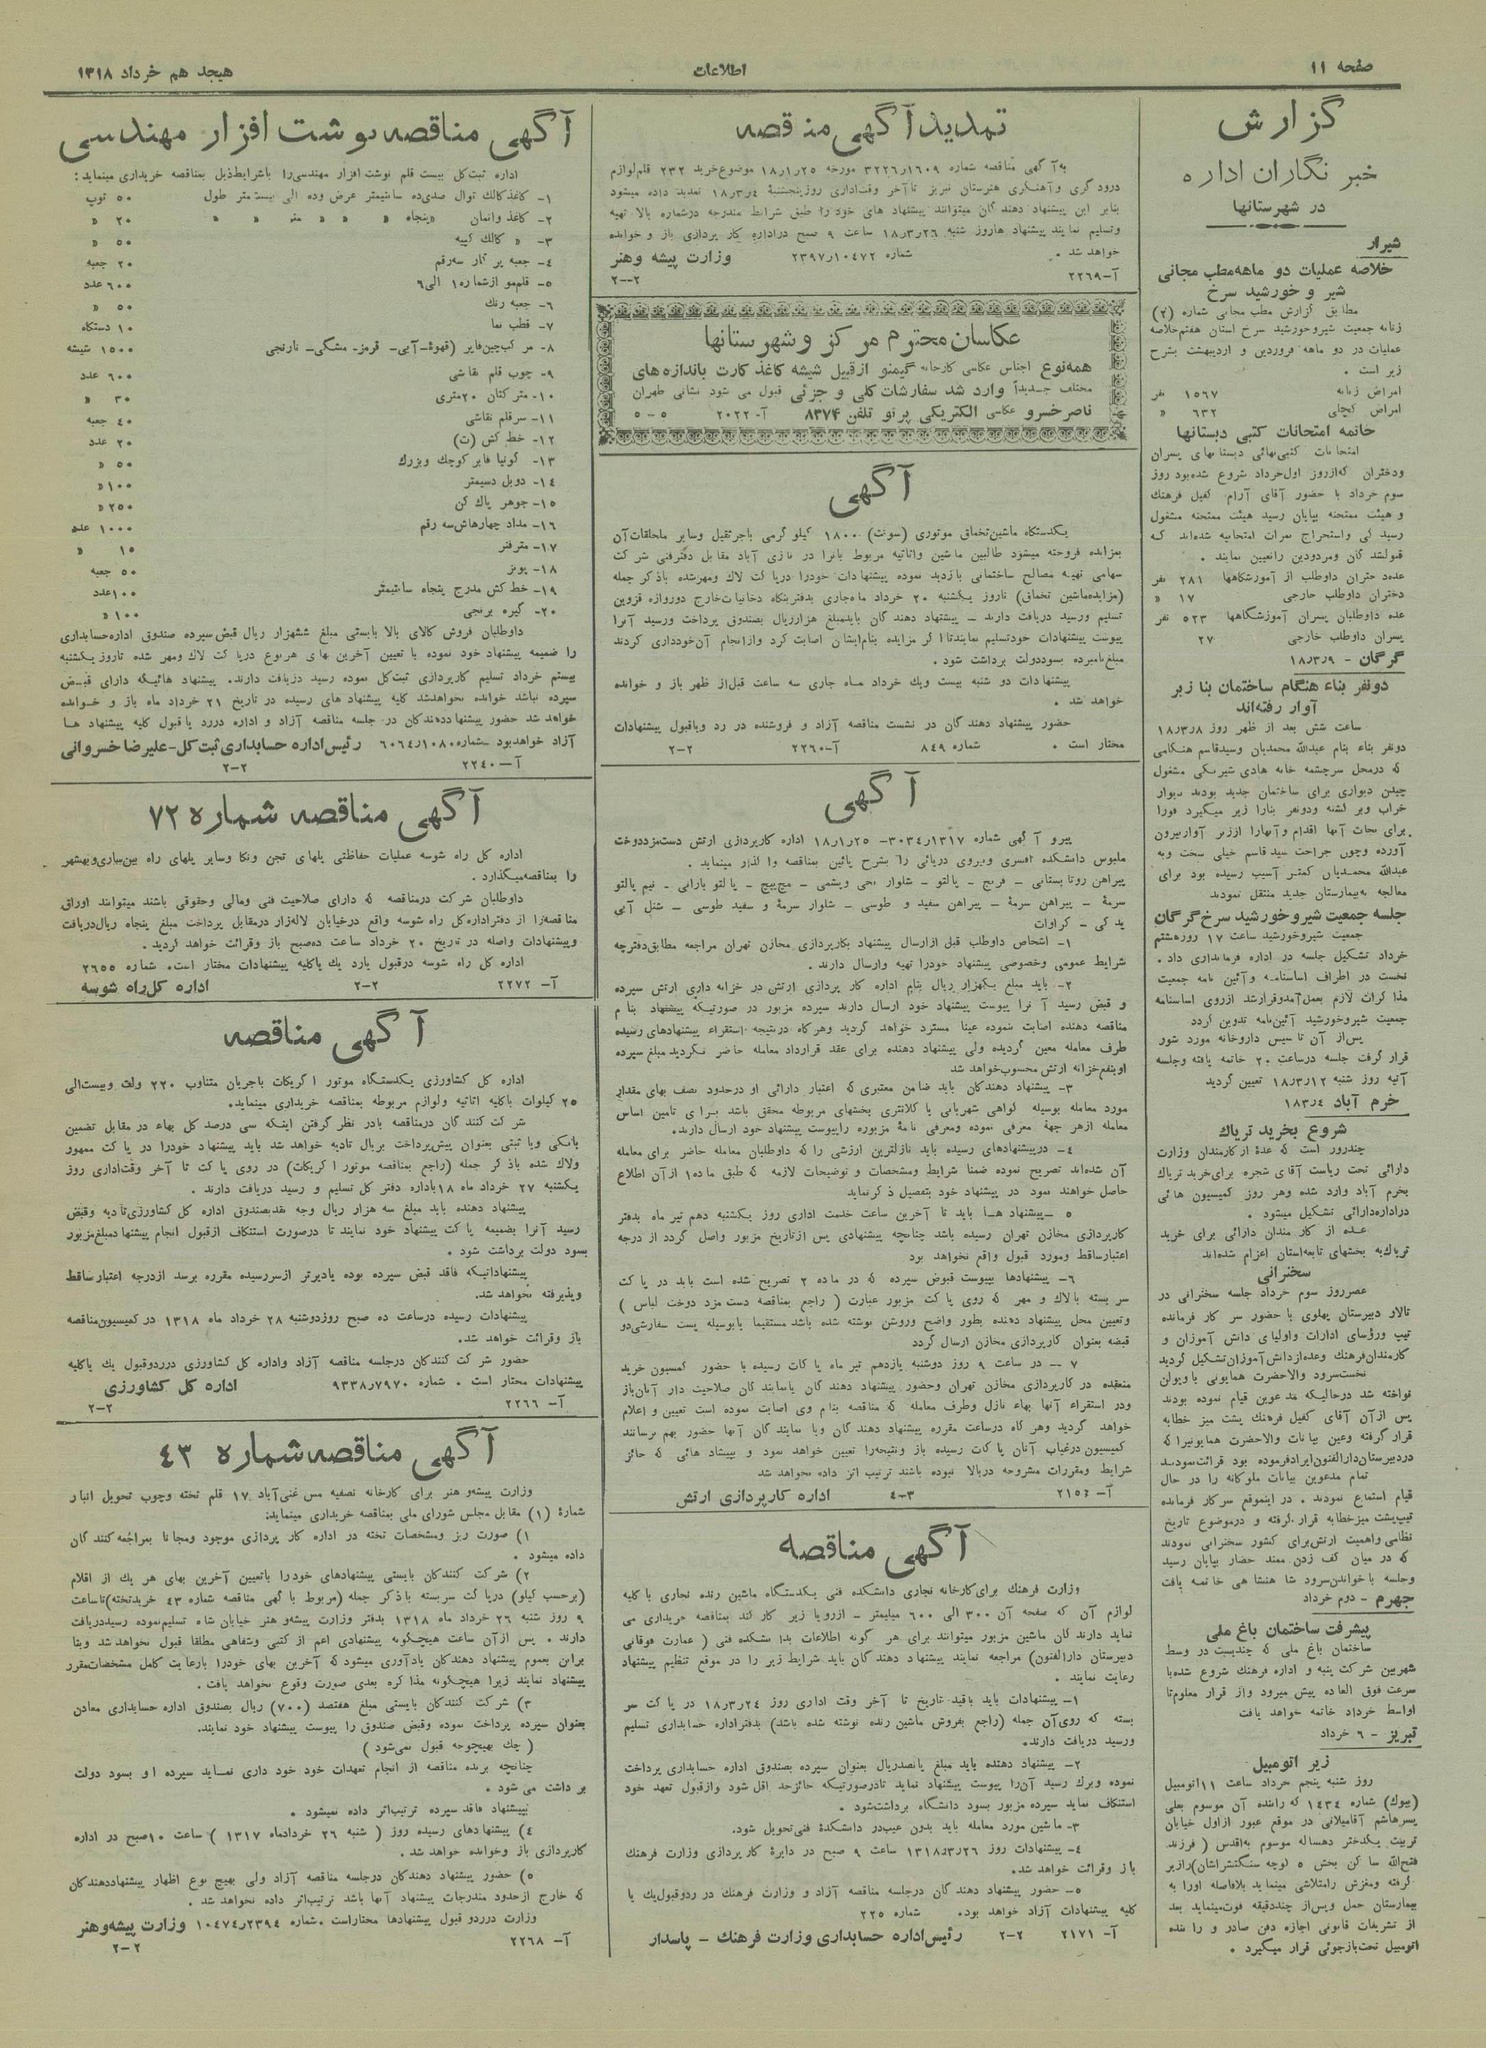 صفحه ۱۱
اطلاعات
هیجدهم خرداد ۱۳۱۸
گزارش
خبر نگاران اداره
در شهرستانها
شیراز
خلاصه عملیات دو ماهه مطب مجانی
شیر و خورشید سرخ
مطابق گزارش مطب مجانی شماره (۲)
زنانه جمعیت شیر و خورشید سرخ استان هفتم خلاصه
عملیات در دو ماهه فروردین و اردیبهشت بشرح
زیر است .
امراض زنانه ۱۵۶۷ نفر
امراض کچلی ۶۳۲ »
خاتمه امتحانات کتبی دبستانها
امتحانات کتبی نهائی دبستانهای پسران
ودختران که از روز اول خرداد شروع شده بود روز
سوم خرداد با حضور آقای آرام کفیل فرهنگ
و هیئت ممتحنه بپایان رسید هیئت ممتحنه مشغول
رسیدگی واستخراج نمرات امتحانیه شده اند که
قبولشدگان ومردودین را تعیین نمایند.
عده دختران داوطلب از آموزشگاهها ۲۸۱ نفر
دختران داوطلب خارجی ۱۷ »
عده داوطلبان پسران آموزشگاهها ۵۲۳ نفر
پسران داوطلب خارجی ۲۷
گرگان - ۱۸٫۳٫۹
دونفر بناء هنگام ساختمان بنا زیر
آوار رفته‌اند
ساعت شش بعد از ظهر روز ۱۸٫۳٫۸
دونفر بناء بنام عبدالله محمدیان وسیدقاسم هنگامی
که درمحل سرچشمه خانه هادی شیرنگی مشغول
چیدن دیواری برای ساختمان جدید بودند دیوار
خراب وبر گشته ودونفر بنا را زیر میگیرد فوراً
برای نجات آنها اقدام وآنهارا اززیر آوار بیرون
آورده وچون جراحت سید قاسم خیلی سخت وبه
عبدالله محمدیان کمتر آسیب رسیده بود برای
معالجه به بیمارستان جدید منتقل نمودند
جلسه جمعیت شیر و خورشید سرخ گرگان
جمعیت شیر وخورشید ساعت ۱۷ روز هشتم
خرداد تشکیل جلسه در اداره فرمانداری داد .
نخست در اطراف اساسنامه و آئین نامه جمعیت
مذاکرات لازم بعمل آمد وقرار شد از روی اساسنامه
جمعیت شیر وخورشید آئین نامه تدوین گردد
پس از آن تاسیس داروخانه مورد شور
قرار گرفت جلسه در ساعت ۲۰ خاتمه یافته وجلسه
آتیه روز شنبه ۱۸٫۳٫۱۲ تعیین گردید
خرم آباد ۱۸٫۳٫۴
شروع بخرید تریاک
چندروز است که عدهٔ از کارمندان وزارت
دارائی تحت ریاست آقای شجره برای خرید تریاک
بخرم آباد وارد شده وهر روز کمیسیون هائی
در اداره دارائی تشکیل میشود .
عده از کار مندان دارائی برای خرید
تریاک به بخشهای تابعه استان اعزام شده‌اند
سخنرانی
عصر روز سوم خرداد جلسه سخنرانی در
تالار دبیرستان پهلوی با حضور سر کار فرمانده
تیپ ورؤسای ادارات واولیای دانش آموزان و
کارمندان فرهنگ وعده از دانش آموزان تشکیل گردید
نخست سرود والاحضرت همایونی با ویولن
نواخته شد در حالیکه مدعوین قیام نموده بودند
پس از آن آقای کفیل فرهنگ پشت میز خطابه
قرار گرفته وعین بیانات والاحضرت همایونیرا که
در دبیرستان دارالفنون ایراد فرموده بود قرائت نمودند
تمام مدعوین بیانات ملوکانه را در حال
قیام استماع نمودند . در اینموقع سرکار فرمانده
تیپ پشت میز خطابه قرار گرفته و در موضوع تاریخ
نظامی واهمیت ارتش برای کشور سخنرانی نمودند
که در میان کف زدن ممتد حضار بپایان رسید
وجلسه با خواندن سرود شاهنشاهی خاتمه یافت
جهرم - دوم خرداد
پیشرفت ساختمان باغ ملی
ساختمان باغ ملی که چندیست در وسط
شهر بین شرکت پنبه و اداره فرهنگ شروع شده با
سرعت فوق العاده پیش میرود واز قرار معلوم تا
اواسط خرداد خاتمه خواهد یافت
تبریز - ۶ خرداد
زیر اتومبیل
روز شنبه پنجم خرداد ساعت ۱۱ اتومبیل
(بیوک) شماره ۱۴۳۴ که راننده آن موسوم بعلی
پسر هاشم آقامیلانی در موقع عبور از اول خیابان
تربیت یکدختر دهساله موسوم به اقدس ( فرزند
فتح‌الله ساکن بخش ۵ کوچه سنگتراشان) رازیر
گرفته ومغزش را متلاشی مینماید بلافاصله اورا به
بیمارستان حمل وپس از چند دقیقه فوت مینماید بعد
از تشریفات قانونی اجازه دفن صادر و راننده
اتومبیل تحت بازجوئی قرار میگیرد .
تمدید آگهی مناقصه
به آگهی مناقصه شماره ۳۲۲۶٫۱۶۰۹ مورخه ۱۸٫۱٫۲۵ موضوع خرید ۲۳۲ قلم لوازم
درودگری و آهنگری هنرستان تبریز تا آخر وقت اداری روز پنجشنبهٔ ۱۸٫۳٫۴ تمدید داده میشود
بنابر این پیشنهاد دهندگان میتوانند پیشنهاد های خود را طبق شرایط مندرجه در شماره بالا تهیه
وتسلیم نمایند پیشنهادها روز شنبه ۱۸٫۳٫۲۶ ساعت ۹ صبح در اداره کار پردازی باز و خوانده
خواهد شد . شماره ۲۳۹۷٫۱۰۴۷۲ وزارت پیشه وهنر
آ-۲۲۶۹ ۲-۲
عکاسان محترم مرکز و شهرستانها
همه نوع اجناس عکاسی کارخانه گیمنو از قبیل شیشه کاغذ کارت باندازه های
مختلف جدیداً وارد شد سفارشات کلی و جزئی قبول می شود نشانی طهران
ناصر خسرو عکاسی الکتریکی پرتو تلفن ۸۳۷۴ آ-۲۰۲۲ ۵-۵
آگهی
یکدستگاه ماشین تخماق موتوری (سونت) ۱۸۰۰ کیلو گرمی با جرثقیل وسایر ملحقات آن
بمزایده فروخته میشود طالبین ماشین واثاثیه مربوط بآنرا در نازی آباد مقابل دفتر فنی شرکت
سهامی تهیه مصالح ساختمانی بازدید نموده پیشنهادات خودرا در پاکت لاک ومهر شده باذکر جمله
(مزایده ماشین تخماق) تا روز یکشنبه ۲۰ خرداد ماه جاری بدفتر بنگاه دخانیات خارج دوروازه قزوین
تسلیم ورسید دریافت دارند - پیشنهاد دهندگان باید مبلغ هزار ریال بصندوق پرداخت ورسید آنرا
پیوست پیشنهادات خود تسلیم نمایند تا اگر مزایده بنام ایشان اصابت کرد واز انجام آن خودداری کردند
مبلغ نامبرده بسود دولت برداشت شود .
پیشنهادات دو شنبه بیست ویک خرداد ماه جاری سه ساعت قبل از ظهر باز و خوانده
خواهد شد .
حضور پیشنهاد دهندگان در نشست مناقصه آزاد و فروشنده در رد ویاقبول پیشنهادات
مختار است . شماره ۸۴۹ آ-۲۲۶۰ ۲-۲
آگهی
پیرو آگهی شماره ۳۰۳۴٫۱۳۱۷- ۱۸٫۱٫۲۵ اداره کارپردازی ارتش دست مزد دوخت
ملبوس دانشکده افسری ونیروی دریائی را بشرح پائین بمناقصه واگذار مینماید .
پیراهن روتابستانی - فرنج - پالتو - شلوار نخی وپشمی - مچ پیچ - پالتو بارانی - نیم پالتو
سرمهٔ - پیراهن سرمهٔ - پیراهن سفید و طوسی - شلوار سرمهٔ و سفید طوسی - شنل آبی
یدکی - کراوات
۱- اشخاص داوطلب قبل از ارسال پیشنهاد بکارپردازی مخازن تهران مراجعه مطابق دفترچه
شرایط عمومی وخصوصی پیشنهاد خودرا تهیه وارسال دارند .
۲- باید مبلغ یکهزار ریال بنام اداره کار پردازی ارتش در خزانه داری ارتش سپرده
و قبض رسید آنرا پیوست پیشنهاد خود ارسال دارند سپرده مزبور در صورتیکه پیشنهاد بنام
مناقصه دهنده اصابت ننموده عیناً مسترد خواهد گردید وهرگاه در نتیجه استقراء پیشنهادهای رسیده
طرف معامله معین گردیده ولی پیشنهاد دهنده برای عقد قرارداد معامله حاضر نگردید مبلغ سپرده
او بنفع خزانه ارتش محسوب خواهد شد
۳- پیشنهاد دهندگان باید ضامن معتبری که اعتبار دارائی او در حدود نصف بهای مقدار
مورد معامله بوسیله گواهی شهربانی یا کلانتری بخشهای مربوطه محقق باشد برای تامین اساس
معامله از هر جهة معرفی نموده ومعرفی نامهٔ مزبوره را پیوست پیشنهاد خود ارسال دارند.
۴- در پیشنهادهای رسیده باید نازلترین ارزشی را که داوطلبان معامله حاضر برای معامله
آن شده‌اند تصریح نموده ضمناً شرایط ومشخصات و توضیحات لازمه که طبق ماده ۱ از آن اطلاع
حاصل خواهند نمود در پیشنهاد خود بتفصیل ذکر نماید
۵ - پیشنهاد ها باید تا آخرین ساعت خدمت اداری روز یکشنبه دهم تیر ماه بدفتر
کارپردازی مخازن تهران رسیده باشد چنانچه پیشنهادی پس از تاریخ مزبور واصل گردد از درجه
اعتبار ساقط ومورد قبول واقع نخواهد بود
۶- پیشنهادها بپیوست قبوض سپرده که در ماده ۲ تصریح شده است باید در پاکت
سر بسته بالاک و مهر که روی پاکت مزبور عبارت ( راجع بمناقصه دست مزد دوخت لباس )
وتعیین محل پیشنهاد دهنده بطور واضح وروشن نوشته شده باشد مستقیماً یا بوسیله پست سفارشی دو
قبضه بعنوان کارپردازی مخازن ارسال گردد
۷ - در ساعت ۹ روز دوشنبه یازدهم تیر ماه پاکات رسیده با حضور کمسیون خرید
منعقده در کارپردازی مخازن تهران وحضور پیشنهاد دهندگان یا نمایندگان صلاحیت دار آنان باز
ودر استقراء آنها بهاء نازل وطرف معامله که مناقصه بنام وی اصابت نموده است تعیین و اعلام
خواهد گردید وهرگاه در ساعت مقرره پیشنهاد دهندگان ویا نمایندگان آنها حضور بهم نرسانند
کمیسیون در غیاب آنان پاکات رسیده باز ونتیجه را تعیین خواهد نمود و پیشنهاد هائی که حائز
شرایط ومقررات مشروحه در بالا نبوده باشند ترتیب اثر داده نخواهد شد
آ- ۲۱۵۶ ۴-۳ اداره کارپردازی ارتش
آگهی مناقصه
وزارت فرهنگ برای کارخانه نجاری دانشکده فنی یکدستگاه ماشین رنده نجاری با کلیه
لوازم آن که صفحه آن ۳۰۰ الی ۶۰۰ میلیمتر - از رو یا زیر کار کند بمناقصه خریداری می
نماید دارندگان ماشین مزبور میتوانند برای هر گونه اطلاعات بدانشکده فنی ( عمارت فوقانی
دبیرستان دارالفنون) مراجعه نمایند پیشنهاد دهندگان باید شرایط زیر را در موقع تنظیم پیشنهاد
رعایت نمایند .
۱- پیشنهادات باید باقید تاریخ تا آخر وقت اداری روز ۱۸٫۳٫۲۴ در پاکت سر
بسته که روی آن جمله (راجع بفروش ماشین رنده نوشته شده باشد) بدفتر اداره حسابداری تسلیم
ورسید دریافت دارند.
۲- پیشنهاد دهنده باید مبلغ پانصد ریال بعنوان سپرده بصندوق اداره حسابداری پرداخت
نموده وبرک رسید آن‌را پیوست پیشنهاد نماید تا در صورتیکه حائز حد اقل شود و از قبول تعهد خود
استنکاف نماید سپرده مزبور بسود دانشگاه برداشت شود.
۳- ماشین مورد معامله باید بدون عیب در دانشکدهٔ فنی تحویل شود.
۴- پیشنهادات روز ۱۳۱۸٫۳٫۲۶ ساعت ۹ صبح در دایرهٔ کارپردازی وزارت فرهنگ
باز وقرائت خواهد شد.
۵- حضور پیشنهاد دهندگان در جلسه مناقصه آزاد و وزارت فرهنگ در رد و قبول یک یا
کلیه پیشنهادات آزاد خواهد بود. شماره ۲۲۵
آ- ۲۱۷۱ ۲-۲ رئیس اداره حسابداری وزارت فرهنگ - پاسدار
آگهی مناقصه نوشت افزار مهندسی
اداره ثبت کل بیست قلم نوشت افزار مهندسی را باشرایط ذیل بمناقصه خریداری مینماید :
۱- کاغذ کالک توال صدی ده سانتیمتر عرض وده الی بیست متر طول ۵۰ توپ
۲- کاغذ واتمان » پنجاه » » » متر » » ۲۰ »
۳- » کالک کپیه ۵۰ »
۴- جعبه پرگار سه رقم ۲۰ جعبه
۵- قلم مو از شماره ۱ الی ۶ ۶۰۰ عدد
۶- جعبه رنگ ۵۰ »
۷- قطب نما ۱۰ دستگاه
۸- مرکب چین فابر (قهوهٔ - آبی - قرمز - مشگی - نارنجی) ۱۵۰۰ شیشه
۹- چوب قلم نقاشی ۶۰۰ عدد
۱۰- متر کتان ۲۰ متری ۳۰ »
۱۱- سرقلم نقاشی ۴۰ جعبه
۱۲- خط کش (ت) ۲۰ عدد
۱۳- گونیا فابر کوچک وبزرگ ۵۰ »
۱۴- دوبل دسیمتر ۱۰۰ »
۱۵- جوهر پاک کن ۲۵۰ »
۱۶- مداد چهارهاش سه رقم ۱۰۰۰ عدد
۱۷- متر فنر ۱۵ »
۱۸- پونز ۵۰ جعبه
۱۹- خط کش مدرج پنجاه سانتیمتر ۱۰۰ عدد
۲۰- گیره برنجی ۱۰۰ »
داوطلبان فروش کالای بالا بایستی مبلغ ششهزار ریال قبض سپرده صندوق اداره حسابداری
را ضمیمه پیشنهاد خود نموده با تعیین آخرین بهای هر نوع در پاکت لاک ومهر شده تا روز یکشنبه
بیستم خرداد تسلیم کارپردازی ثبت کل نموده رسید دریافت دارند. پیشنهاد هائیکه دارای قبض
سپرده نباشد خوانده نخواهد شد کلیه پیشنهاد های رسیده در تاریخ ۲۱ خرداد ماه باز و خوانده
خواهد شد حضور پیشنهاد دهندگان در جلسه مناقصه آزاد و اداره در رد یا قبول کلیه پیشنهاد ها
آزاد خواهد بود - شماره ۶۰۶۴٫۱۰۸۰ رئیس اداره حسابداری ثبت کل - علیرضا خسروانی
آ-۲۲۴۰ ۲-۲
آگهی مناقصه شماره ۷۲
اداره کل راه شوسه عملیات حفاظتی پلهای تجن ونکا وسایر پلهای راه بین ساری وبهشهر
را بمناقصه میگذارد .
داوطلبان شرکت در مناقصه که دارای صلاحیت فنی ومالی وحقوقی باشند میتوانند اوراق
مناقصه را از دفتر اداره کل راه شوسه واقع در خیابان لاله‌زار در مقابل پرداخت مبلغ پنجاه ریال دریافت
وپیشنهادات واصله در تاریخ ۲۰ خرداد ساعت ده صبح باز وقرائت خواهد گردید.
اداره کل راه شوسه در قبول یارد یک یا کلیه پیشنهادات مختار است. شماره ۲۶۵۵
آ- ۲۲۷۲ ۲-۲ اداره کل راه شوسه
آگهی مناقصه
اداره کل کشاورزی یکدستگاه موتور اگریکات باجریان متناوب ۲۲۰ ولت وبیست الی
۲۵ کیلوات باکلیه اثاثیه ولوازم مربوطه بمناقصه خریداری مینماید.
شرکت کنندگان در مناقصه بادر نظر گرفتن اینکه سی درصد کل بهاء در مقابل تضمین
بانکی ویا ثبتی بعنوان پیش پرداخت بریال تادیه خواهد شد باید پیشنهاد خودرا در پاکت ممهور
ولاک شده باذکر جمله (راجع بمناقصه موتور اگریکات) در روی پاکت تا آخر وقت اداری روز
یکشنبه ۲۷ خرداد ماه ۱۸ باداره دفتر کل تسلیم و رسید دریافت دارند .
پیشنهاد دهنده باید مبلغ سه هزار ریال وجه نقد بصندوق اداره کل کشاورزی تادیه وقبض
رسید آنرا بضمیمه پاکت پیشنهاد خود نمایند تا در صورت استنکاف از قبول انجام پیشنهاد مبلغ مزبور
بسود دولت برداشت شود .
پیشنهاداتیکه فاقد قبض سپرده بوده یا دیرتر از سررسیده مقرره برسد از درجه اعتبار ساقط
وپذیرفته نخواهد شد.
پیشنهادات رسیده در ساعت ده صبح روز دوشنبه ۲۸ خرداد ماه ۱۳۱۸ در کمیسیون مناقصه
باز وقرائت خواهد شد.
حضور شرکت کنندگان در جلسه مناقصه آزاد واداره کل کشاورزی در رد و قبول یک یا کلیه
پیشنهادات مختار است . شماره ۹۳۳۸٫۷۹۷۰ اداره کل کشاورزی
آ- ۲۲۶۶ ۲-۲
آگهی مناقصه شماره ۴۳
وزارت پیشه و هنر برای کارخانه تصفیه مس غنی آباد ۱۷ قلم تخته وچوب تحویل انبار
شمارهٔ (۱) مقابل مجلس شورای ملی بمناقصه خریداری مینماید:
۱) صورت ریز ومشخصات تخته در اداره کار پردازی موجود ومجاناً بمراجعه کنندگان
داده میشود .
۲) شرکت کنندگان بایستی پیشنهادهای خودرا باتعیین آخرین بهای هر یک از اقلام
(برحسب کیلو) در پاکت سربسته با ذکر جمله (مربوط بآگهی مناقصه شماره ۴۳ خرید تخته) تا ساعت
۹ روز شنبه ۲۶ خرداد ماه ۱۳۱۸ بدفتر وزارت پیشه و هنر خیابان شاه تسلیم نموده رسید دریافت
دارند . پس از آن ساعت هیچگونه پیشنهادی اعم از کتبی وشفاهی مطلقاً قبول نخواهد شد وبنا
براین بعموم پیشنهاد دهندگان یادآوری میشود که آخرین بهای خودرا بارعایت کامل مشخصات مقرر
پیشنهاد نمایند زیرا هیچگونه مذاکره بعدی صورت وقوع نخواهد یافت .
۳) شرکت کنندگان بایستی مبلغ هفتصد (۷۰۰) ریال بصندوق اداره حسابداری معادن
بعنوان سپرده پرداخت نموده وقبض صندوق را پیوست پیشنهاد خود نمایند.
( چک بهیچوجه قبول نمی‌شود )
چنانچه برنده مناقصه از انجام تعهدات خود خود داری نماید سپرده او بسود دولت
بر داشت می شود .
بپیشنهاد فاقد سپرده ترتیب اثر داده نمیشود .
۴) پیشنهادهای رسیده روز ( شنبه ۲۶ خرداد ماه ۱۳۱۷ ) ساعت ۱۰ صبح در اداره
کارپردازی باز وخوانده خواهد شد .
۵) حضور پیشنهاد دهندگان در جلسه مناقصه آزاد ولی بهیچ نوع اظهار پیشنهاد دهندگان
که خارج از حدود مندرجات پیشنهاد آنها باشد ترتیب اثر داده نخواهد شد .
وزارت در رد و قبول پیشنهادها مختار است . شماره ۱۰۴۷۴٫۲۳۹۴ وزارت پیشه و هنر
آ- ۲۲۶۸ ۲-۲